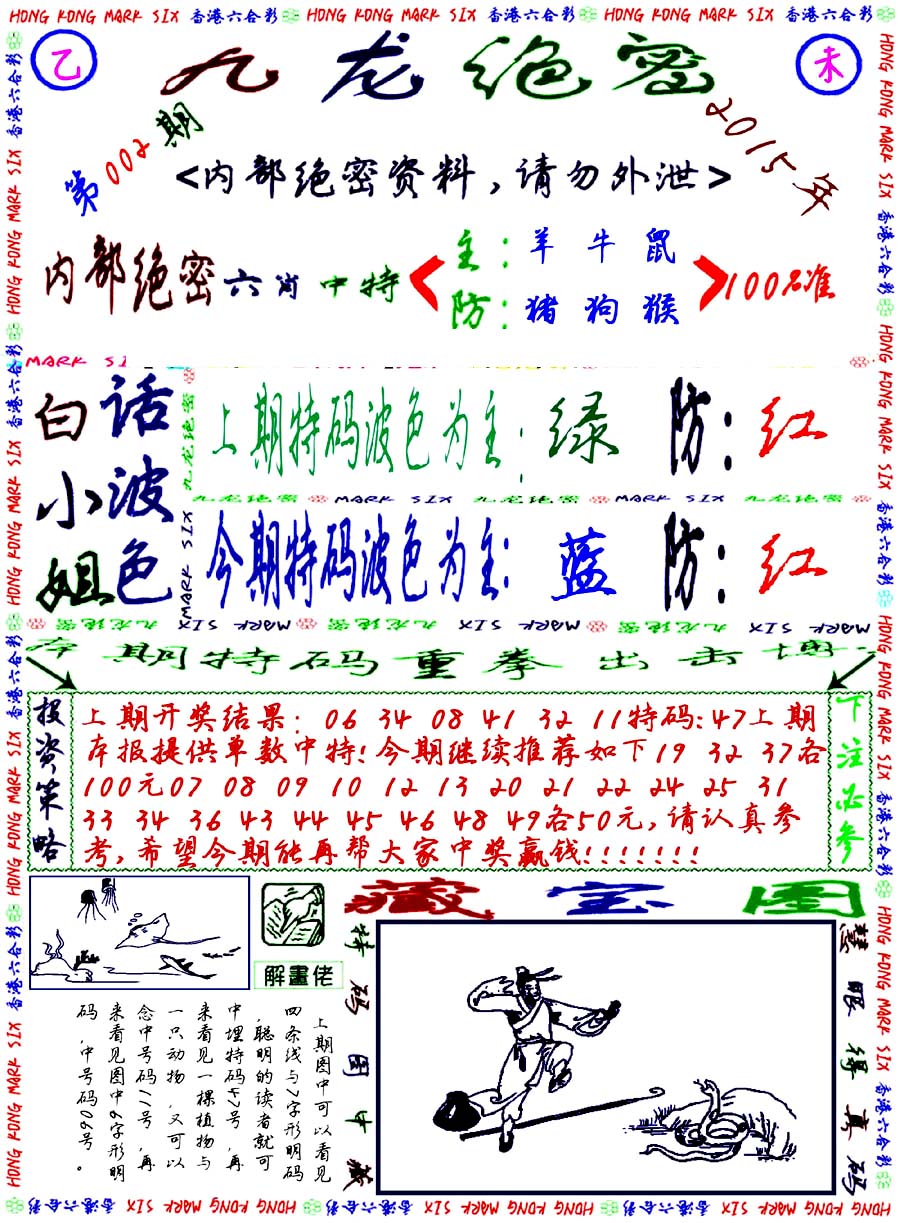 HONG KONG MARK SIX 香港六合彩 HONG KONG MARK SIX 香港六合彩 HONG KONG MARK SIX 香港六合彩
乙
九龙绝密
未
第002期
2015年
<内部绝密资料,请勿外泄>
内部绝密六肖中特
主:羊牛鼠
防:猪狗猴
100%准
MARK SIX
白话
小波
姐色
上期特码波色为主:绿 防:红
九龙绝密 MARK SIX 九龙绝密 MARK SIX 九龙绝密
今期特码波色为主:蓝 防:红
九龙绝密 MARK SIX 九龙绝密 MARK SIX 九龙绝密 MARK SIX
本期特码重拳出击博
投资策略
上期开奖结果: 06 34 08 41 32 11特码:47上期
本报提供单数中特!今期继续推荐如下19 32 37各
100元07 08 09 10 12 13 20 21 22 24 25 31
33 34 36 43 44 45 46 48 49各50元,请认真参
考,希望今期能再帮大家中奖赢钱!!!!!!!
下注必参
解畫佬
藏宝图
特码图中藏
慧眼得真码
上期图中可以看见
四条线与7字形明码
,聪明的读者就可
中埋特码47号,再
来看见一棵植物与
一只动物,又可以
念中号码11号,再
来看见图中9字形明
码,中号码09号。
HONG KONG MARK SIX 香港六合彩 HONG KONG MARK SIX 香港六合彩 HONG KONG MARK SIX 香港六合彩